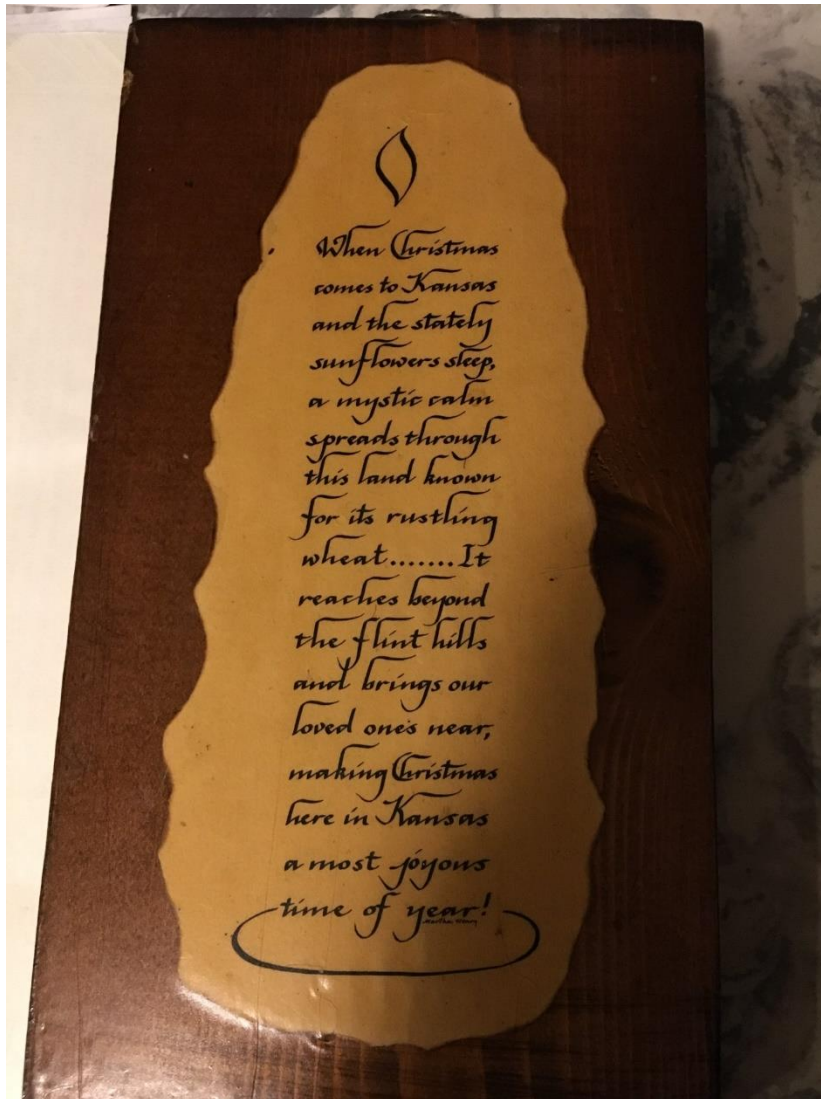 When Christmas
comes to Kansas
and the stately
sunflowers sleep,
a mystic calm
spreads through
this land known
for its rustling
wheat.......It
reaches beyond
the flint hills
and brings our
loved one's near,
making Christmas
here in Kansas
a most joyous
time of year!
Martha Henry